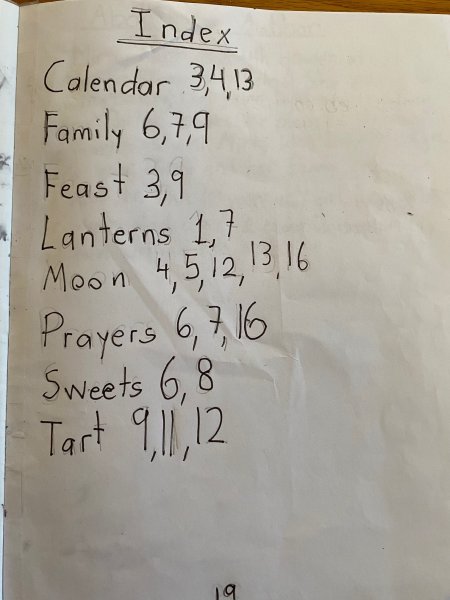 Index
Calendar 3,4,13
Family 6,7,9
Feast 3,9
Lanterns 1,7
Moon 4,5,12,13,16
Prayers 6,7,16
Sweets 6,8
Tart 9,11,12
19